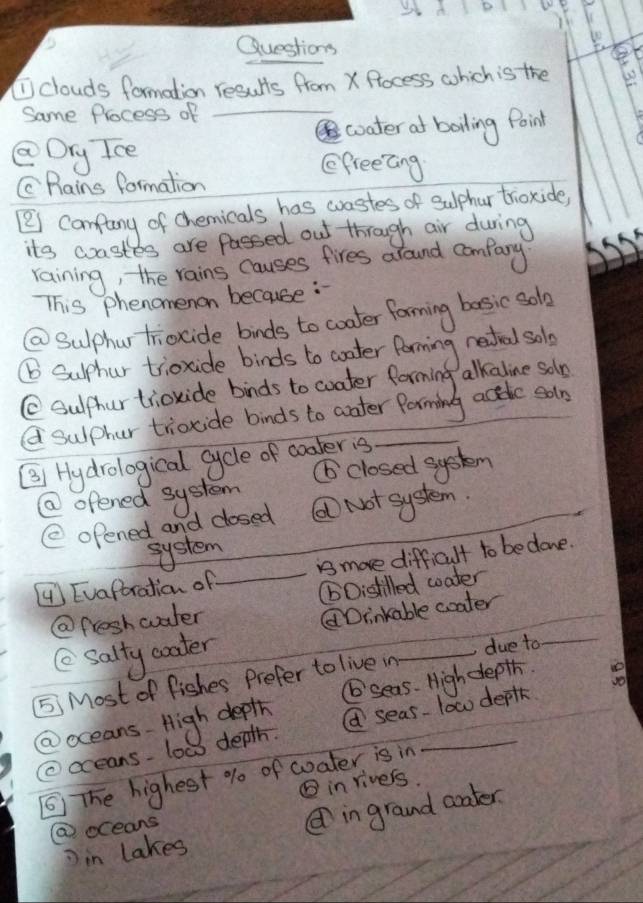 Questions
① Clouds formation results from X Process which is the
same Process of ________
ⓐ Dry Ice
ⓑ water at boiling Point
ⓒ Rains formation
ⓒ freezing
② Company of chemicals has wastes of sulphur trioxide,
its wastes are passed out through air during
raining, the rains causes fires around company.
This phenomenon because :-
ⓐ sulphur trioxide binds to water forming basic soln
ⓑ sulphur trioxide binds to water forming neutral soln
ⓒ sulphur trioxide binds to water forming alkaline soln
ⓓ sulphur trioxide binds to water forming acidic soln
③ Hydrological cycle of water is ________
ⓐ opened system
ⓑ closed system
ⓒ opened and closed
system
ⓓ Not system.
④ Evaporation of ________ is more difficult to be done.
ⓐ fresh water
ⓑ Distilled water
ⓒ salty water
ⓓ Drinkable water
⑤ Most of fishes Prefer to live in ________, due to ________
ⓐ oceans - High depth
ⓑ seas - High depth.
ⓒ oceans - low depth.
ⓓ seas - low depth.
⑥ The highest % of water is in ________
ⓐ oceans
ⓑ in rivers.
in lakes
ⓓ in grand water.